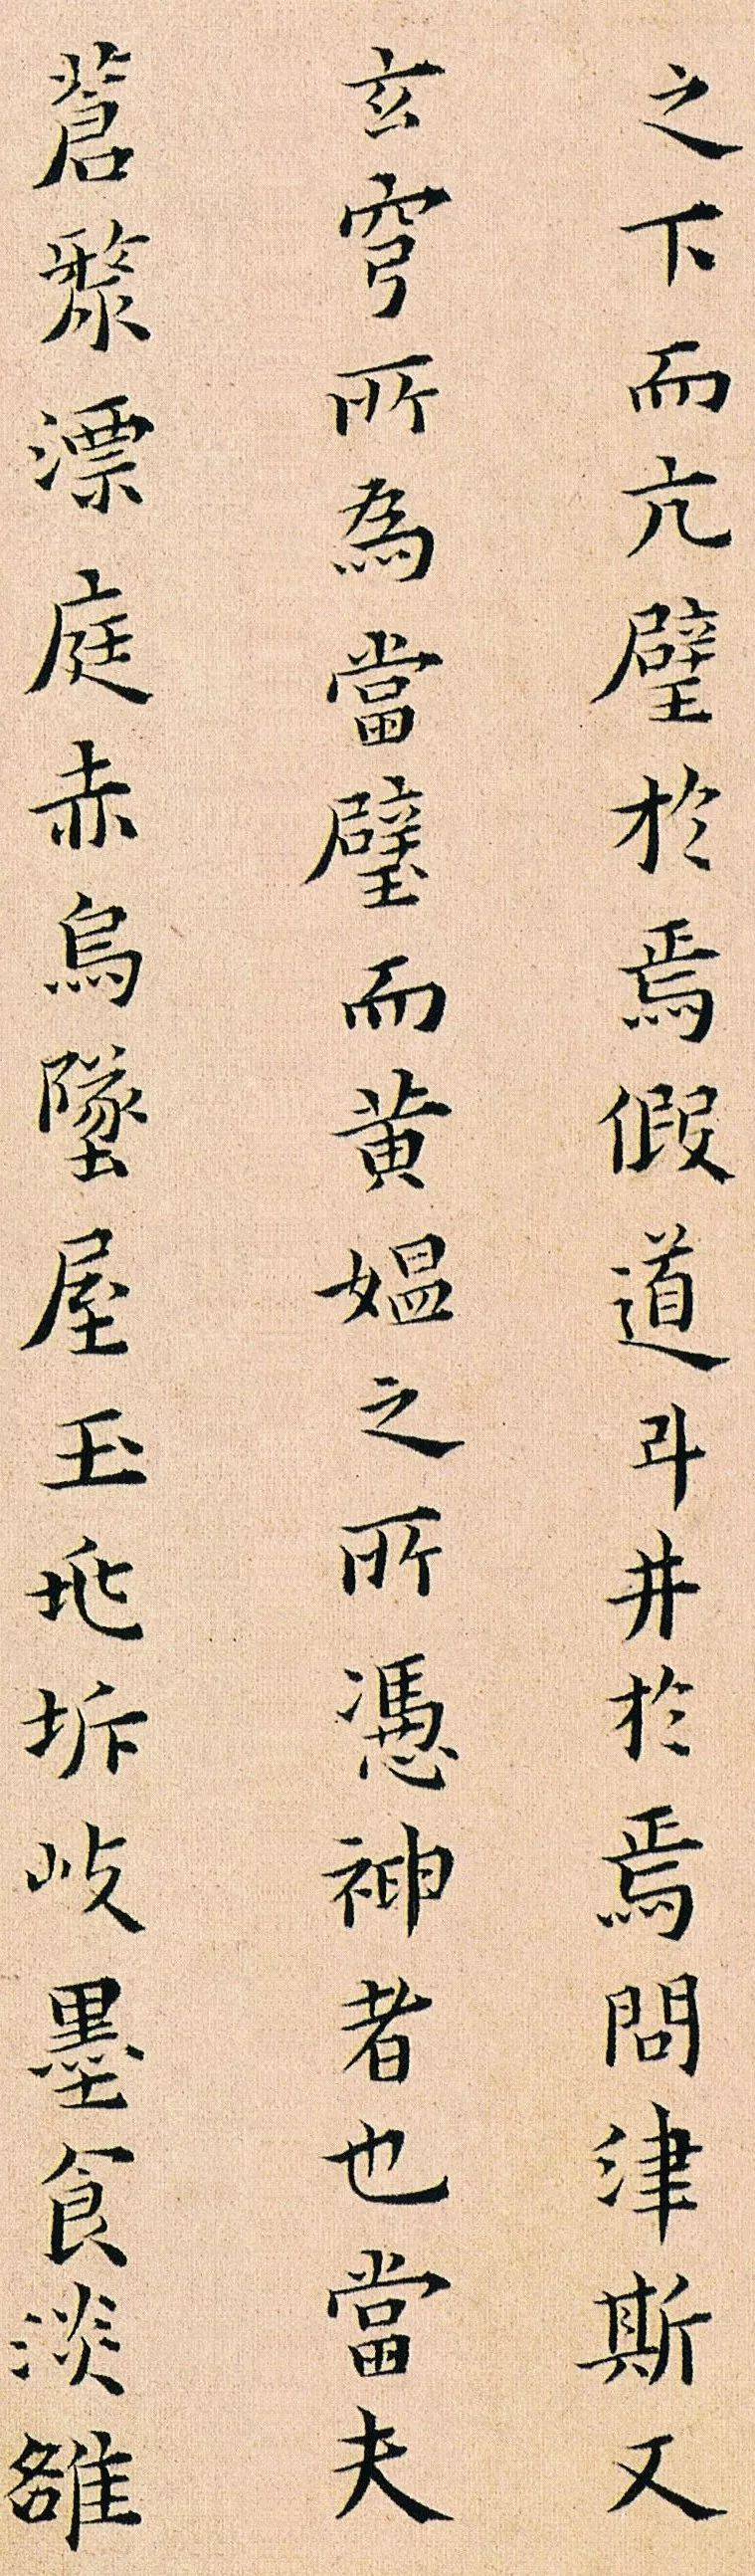 之下而亢壁於焉假道斗井於焉問津斯又
玄穹所為當璧而黃媼之所憑神者也當夫
蒼漦漂庭赤烏墜屋玉圻岐墨食淡雒